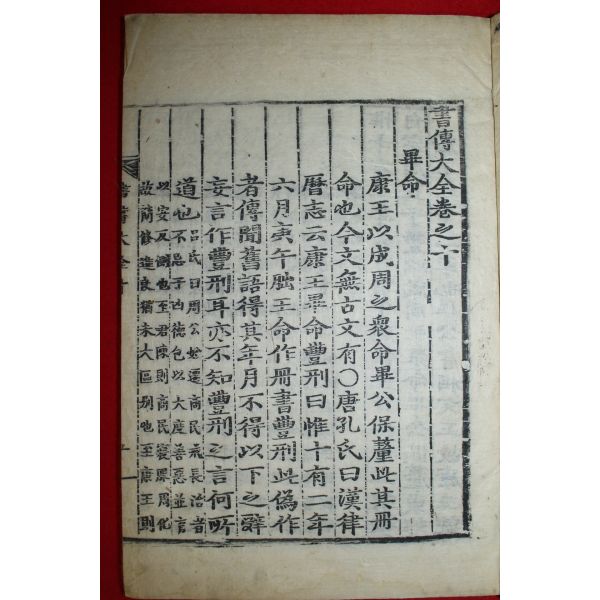 書傳大全卷之十
畢命
康王以成周之衆命畢公保釐此其冊
命也今文無古文有○唐孔氏曰漢律
曆志云康王畢命豐刑曰惟十有二年
六月庚午朏王命作冊書豐刑此僞作
者傳聞舊語得其年月不得以下之辭
妄言作豐刑耳亦不知豐刑之言何所
道也
呂氏曰周公始遷商民戒長治者
不忌于凶德包以大度善惡並言
以安反側也至君陳則商民寖厭周化
故簡修進良猶未大區別也至康王則
書傳大全十